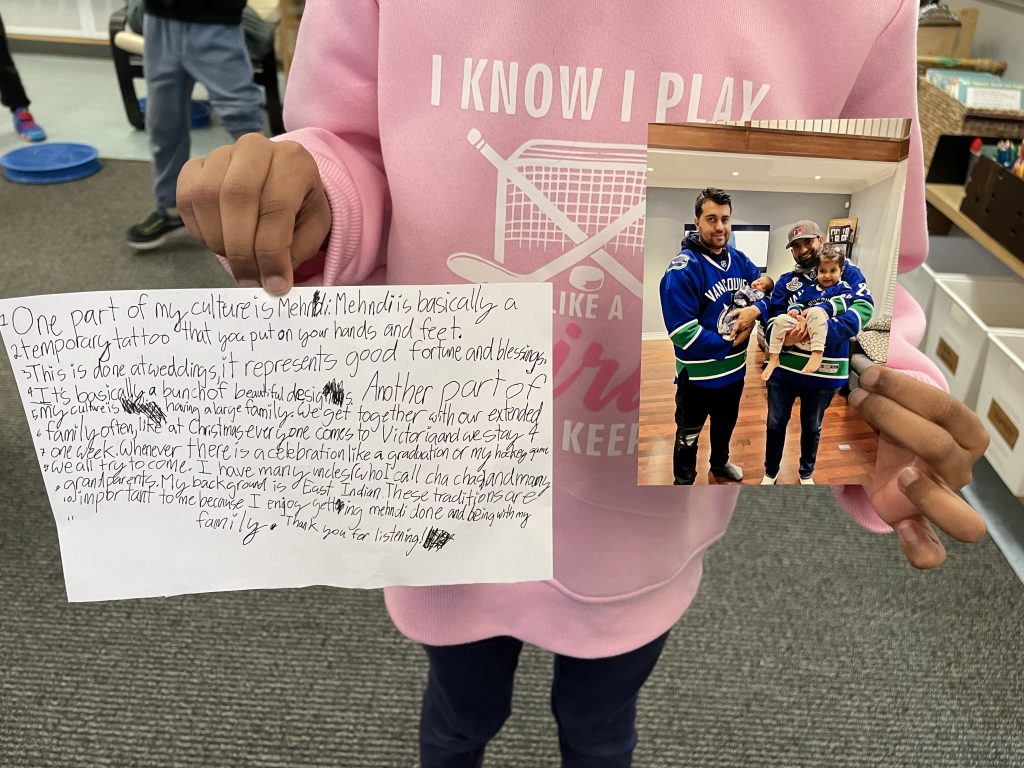 I KNOW I PLAY
LIKE A
KEEP
VANCOUV
VANCOUV
1 One part of my culture is Mehndi. Mehndi is basically a
2 temporary tattoo that you put on your hands and feet.
3 This is done at weddings, it represents good fortune and blessings.
4 It's basically a bunch of beautiful designs. Another part of
5 my culture is having a large family. We get together with our extended
6 family often, like at Christmas everyone comes to Victoria and we stay 4
7 one week. Whenever there is a celebration like a graduation or my hockey game
8 we all try to come. I have many uncles (who I call cha chas) and many
9 grandparents. My background is East Indian. These traditions are
10 important to me because I enjoy getting mehndi done and being with my
11 family. Thank you for listening!